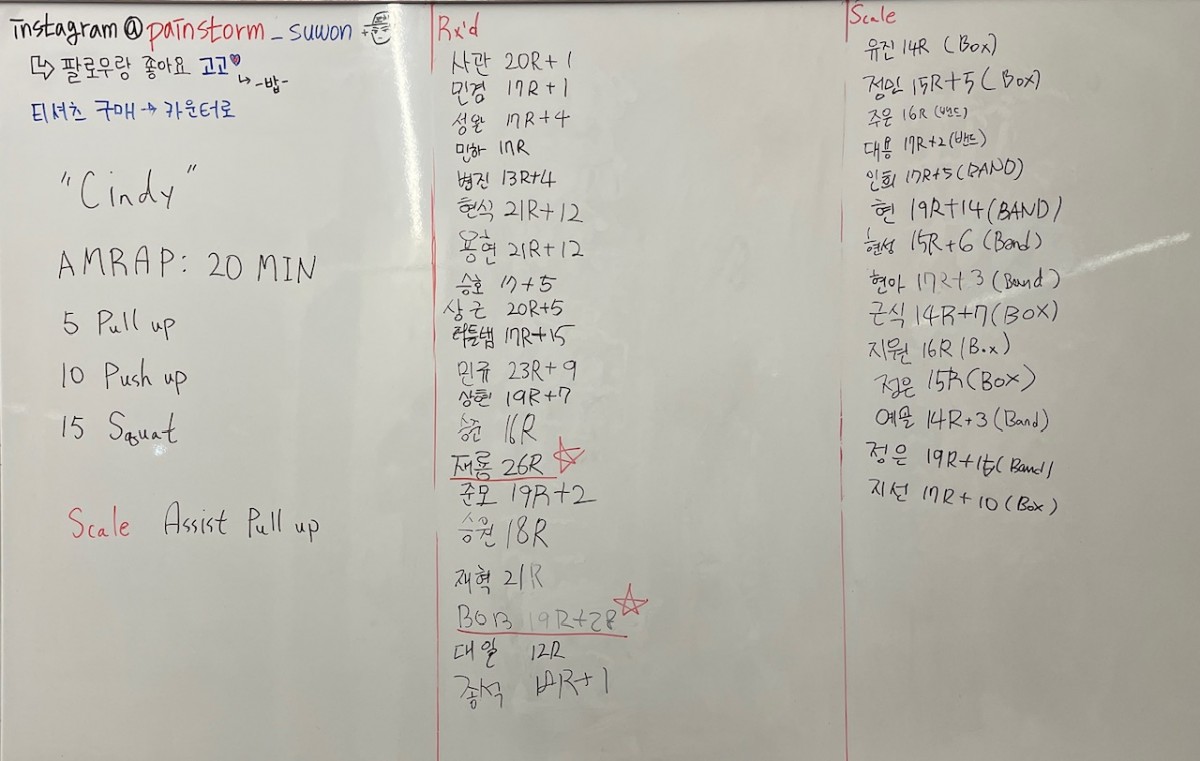 instagram @ painstorm _ suwon
↳ 팔로우랑 좋아요 고고♥
↳ -밥-
티셔츠 구매 → 카운터로
"Cindy"
AMRAP: 20 MIN
5 Pull up
10 Push up
15 Squat
Scale Assist Pull up
Rx'd
사관 20R+1
민경 17R+1
성완 17R+4
민하 17R
범진 13R+4
현식 21R+12
용현 21R+12
승호 17+5
상근 20R+5
17R+15
민규 23R+9
상현 19R+7
승준 16R
재룡 26R ☆
준모 19R+2
승원 18R
재혁 21R
BOB 19R+28 ☆
대일 12R
종석 R+1
Scale
유진 14R (Box)
정민 15R+5 (Box)
주은 16R (밴드)
대용 17R+2 (밴드)
인희 17R+5 (BAND)
현 19R+14 (BAND)
현성 15R+6 (Band)
현아 17R+3 (Band)
근식 14R+7 (BOX)
지원 16R (Box)
정은 15R (BOX)
14R+3 (Band)
정은 (Band)
지선 17R+10 (Box)